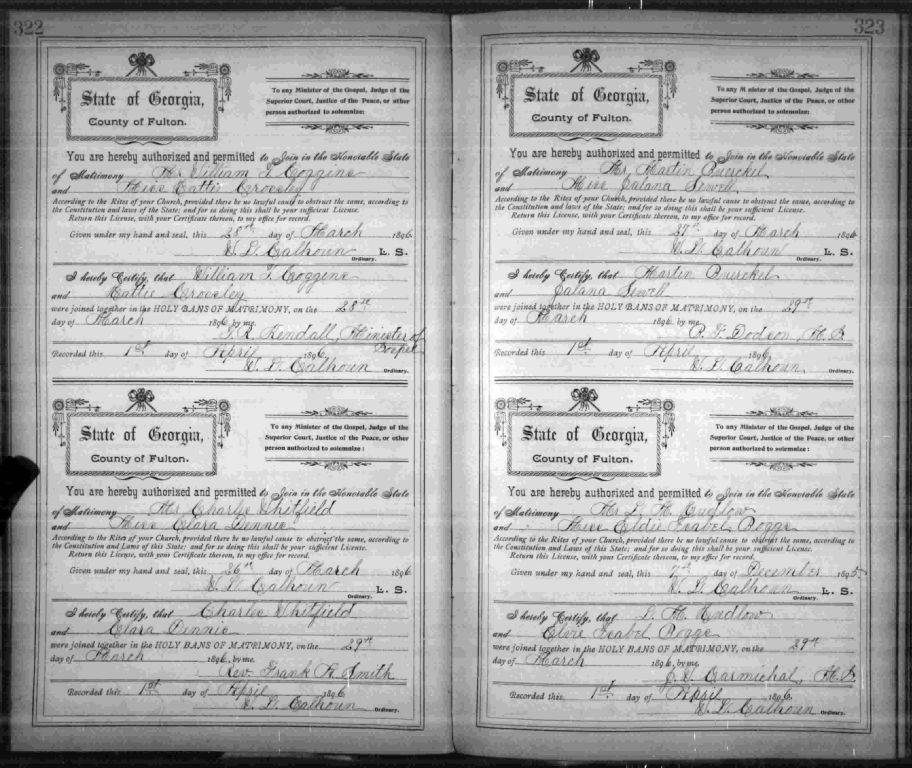 322
State of Georgia,
County of Fulton.
To any Minister of the Gospel, Judge of the
Superior Court, Justice of the Peace, or other
person authorized to solemnize:
You are hereby authorized and permitted to Join in the Honorable State
of Matrimony Mr William T. Coggins
and Miss Cattie Crovsley
According to the Rites of your Church, provided there be no lawful cause to obstruct the same, according to
the Constitution and laws of the State; and for so doing this shall be your sufficient License.
Return this License, with your Certificate thereon, to my office for record.
Given under my hand and seal, this 28th day of March 1896
W. L. Calhoun L. S.
Ordinary.
I hereby Certify, that William T. Coggins
and Cattie Crovsley
were joined together in the HOLY BANS OF MATRIMONY, on the 28th
day of March 1896, by me.
T. R. Kendall, Minister of
Gospel
Recorded this 1st day of April 1896.
W. L. Calhoun Ordinary.
State of Georgia,
County of Fulton.
To any Minister of the Gospel, Judge of the
Superior Court, Justice of the Peace, or other
person authorized to solemnize:
You are hereby authorized and permitted to Join in the Honorable State
of Matrimony Mr Charlie Whitfield
and Miss Clara Dennis
According to the Rites of your Church, provided there be no lawful cause to obstruct the same, according to
the Constitution and Laws of this State; and for so doing this shall be your sufficient License.
Return this License, with your Certificate thereon, to my office for record.
Given under my hand and seal, this 26th day of March 1896
W. L. Calhoun L. S.
Ordinary.
I hereby Certify, that Charlie Whitfield
and Clara Dennis
were joined together in the HOLY BANS OF MATRIMONY, on the 29th
day of March 1896, by me.
Rev. Frank R. Smith
Recorded this 1st day of April 1896
W. L. Calhoun Ordinary.
323
State of Georgia,
County of Fulton.
To any Minister of the Gospel, Judge of the
Superior Court, Justice of the Peace, or other
person authorized to solemnize:
You are hereby authorized and permitted to Join in the Honorable State
of Matrimony Mr Martin Buerckel
and Miss Salana Sewell
According to the Rites of your Church, provided there be no lawful cause to obstruct the same, according to
the Constitution and laws of the State; and for so doing this shall be your sufficient License.
Return this License, with your Certificate thereon, to my office for record.
Given under my hand and seal, this 27th day of March 1896
W. L. Calhoun L. S.
Ordinary.
I hereby Certify, that Martin Buerckel
and Salana Sewell
were joined together in the HOLY BANS OF MATRIMONY, on the 29th
day of March 1896, by me.
P. F. Dodson, M. G.
Recorded this 1st day of April 1896.
W. L. Calhoun, Ordinary.
State of Georgia,
County of Fulton.
To any Minister of the Gospel, Judge of the
Superior Court, Justice of the Peace, or other
person authorized to solemnize:
You are hereby authorized and permitted to Join in the Honorable State
of Matrimony Mr L. M. Cudlow
and Miss Isabel Bogge
According to the Rites of your Church, provided there be no lawful cause to obstruct the same, according to
the Constitution and Laws of this State; and for so doing this shall be your sufficient License.
Return this License, with your Certificate thereon, to my office for record.
Given under my hand and seal, this 7th day of December 1895
W. L. Calhoun L. S.
Ordinary.
I hereby Certify, that L. M. Cudlow
and Isabel Bogge
were joined together in the HOLY BANS OF MATRIMONY, on the 29th
day of March 1896, by me.
Carmichal, M. G.
Recorded this 1st day of April 1896.
W. L. Calhoun Ordinary.